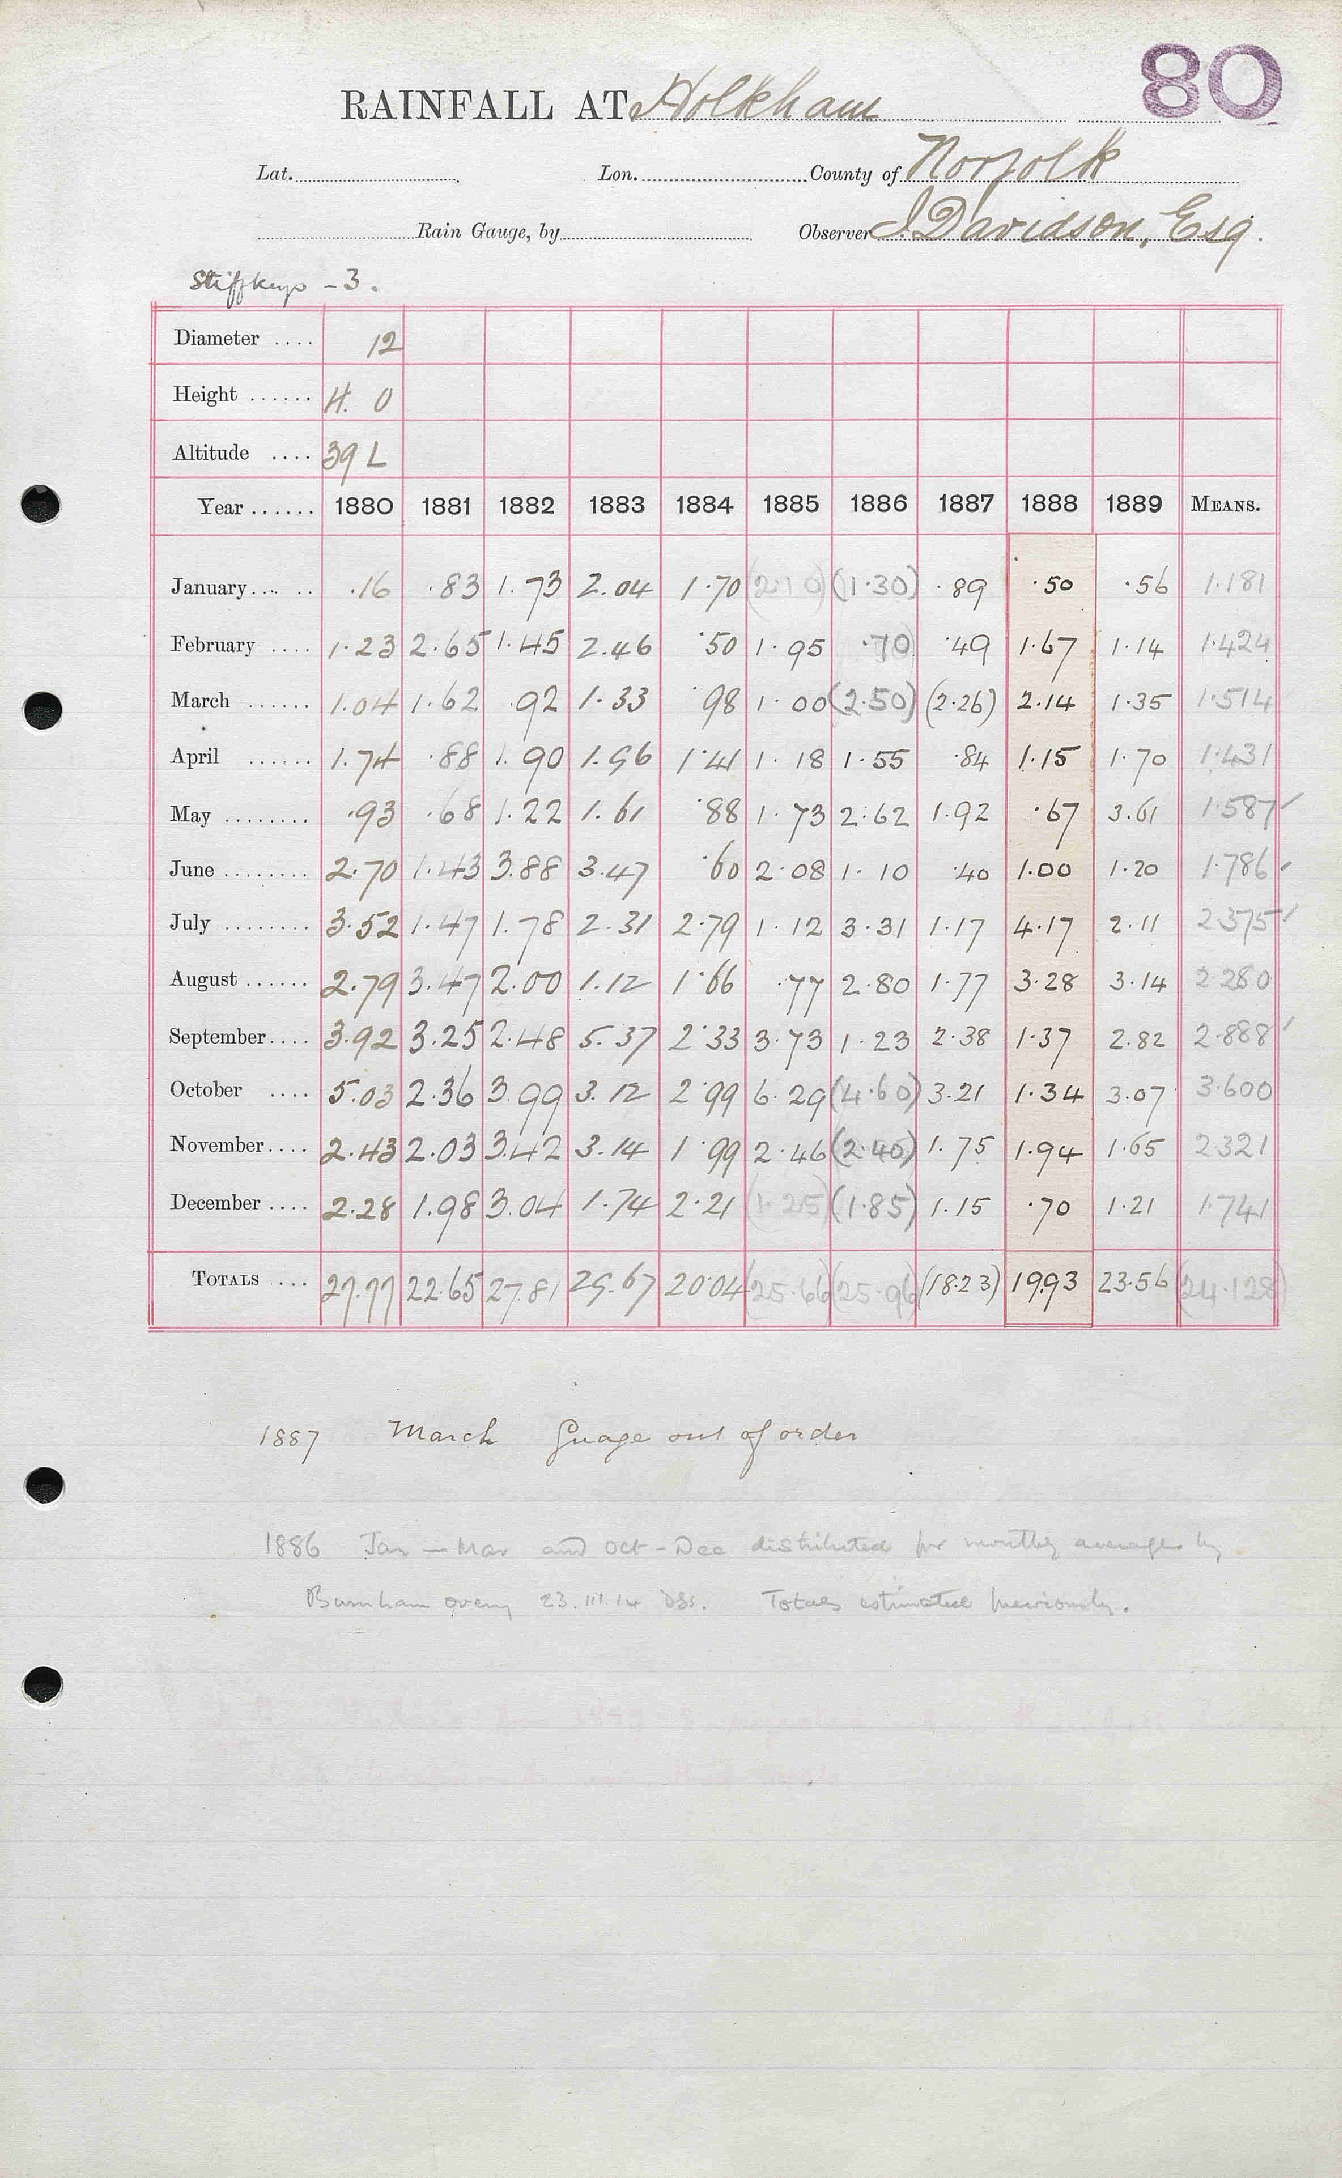 80
RAINFALL AT Holkham
Lat. Lon. County of Norfolk
Rain Gauge, by Observer J. Davidson, Esq.
Stiffkey - 3.
Diameter .... 12
Height ...... H. 0
Altitude .... 39 L
Year ...... 1880 1881 1882 1883 1884 1885 1886 1887 1888 1889 MEANS.
January .... .16 .83 1.73 2.04 1.70 (2.10) (1.30) .89 .50 .56 1.181
February .... 1.23 2.65 1.45 2.46 .50 1.95 .70) .49 1.67 1.14 1.424
March ...... 1.04 1.62 .92 1.33 .98 1.00 (2.50) (2.26) 2.14 1.35 1.514
April ...... 1.74 .88 1.90 1.96 1.41 1.18 1.55 .84 1.15 1.70 1.431
May ........ .93 .68 1.22 1.61 .88 1.73 2.62 1.92 .67 3.61 1.587
June ........ 2.70 1.43 3.88 3.47 .60 2.08 1.10 .40 1.00 1.20 1.786
July ........ 3.52 1.47 1.78 2.31 2.79 1.12 3.31 1.17 4.17 2.11 2.375
August ...... 2.79 3.47 2.00 1.12 1.66 .77 2.80 1.77 3.28 3.14 2.280
September .... 3.92 3.25 2.48 5.37 2.33 3.73 1.23 2.38 1.37 2.82 2.888
October .... 5.03 2.36 3.99 3.12 2.99 6.29 (4.60) 3.21 1.34 3.07 3.600
November .... 2.43 2.03 3.42 3.14 1.99 2.46 (2.40) 1.75 1.94 1.65 2.321
December .... 2.28 1.98 3.04 1.74 2.21 (1.25) (1.85) 1.15 .70 1.21 1.741
TOTALS .... 27.77 22.65 27.81 29.67 20.04 (25.66) (25.96) (18.23) 19.93 23.56 (24.128)
1887 March Guage out of order
1886 Jan - Mar and Oct - Dec distributed for monthly averages by
Burnham Overy 23.III.14 Totals estimated previously.